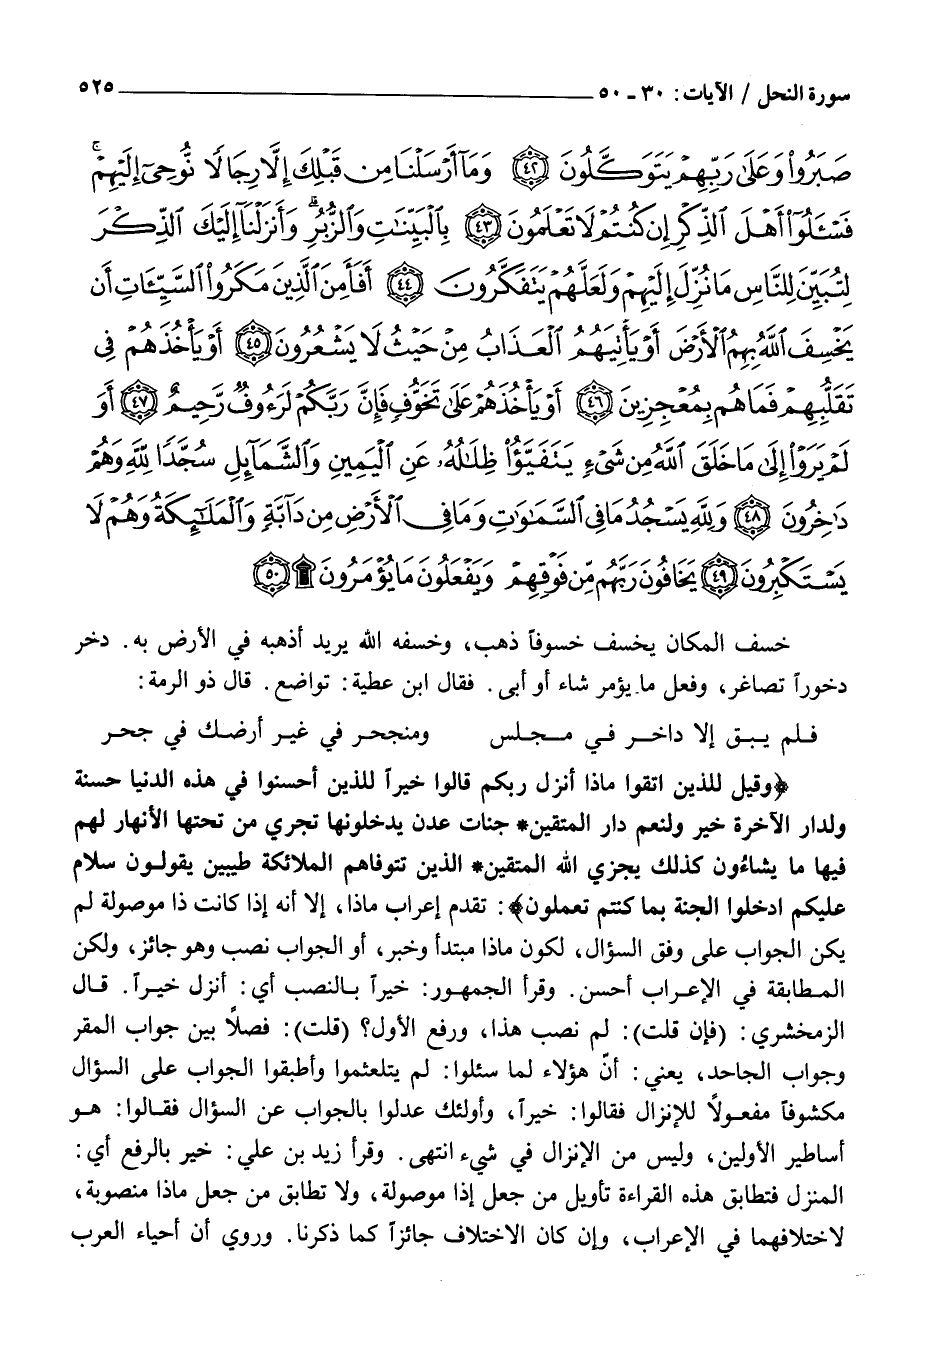 سورة النحل / الآيات: ٣٠ ـ ٥٠ ٥٢٥
صَبَرُوا۟ وَعَلَىٰ رَبِّهِمْ يَتَوَكَّلُونَ ﴿٤٢﴾ وَمَآ أَرْسَلْنَا مِن قَبْلِكَ إِلَّا رِجَالًا نُّوحِىٓ إِلَيْهِمْ ۚ
فَسْـَٔلُوٓا۟ أَهْلَ ٱلذِّكْرِ إِن كُنتُمْ لَا تَعْلَمُونَ ﴿٤٣﴾ بِٱلْبَيِّنَـٰتِ وَٱلزُّبُرِ ۗ وَأَنزَلْنَآ إِلَيْكَ ٱلذِّكْرَ
لِتُبَيِّنَ لِلنَّاسِ مَا نُزِّلَ إِلَيْهِمْ وَلَعَلَّهُمْ يَتَفَكَّرُونَ ﴿٤٤﴾ أَفَأَمِنَ ٱلَّذِينَ مَكَرُوا۟ ٱلسَّيِّـَٔاتِ أَن
يَخْسِفَ ٱللَّهُ بِهِمُ ٱلْأَرْضَ أَوْ يَأْتِيَهُمُ ٱلْعَذَابُ مِنْ حَيْثُ لَا يَشْعُرُونَ ﴿٤٥﴾ أَوْ يَأْخُذَهُمْ فِى
تَقَلُّبِهِمْ فَمَا هُم بِمُعْجِزِينَ ﴿٤٦﴾ أَوْ يَأْخُذَهُمْ عَلَىٰ تَخَوُّفٍ فَإِنَّ رَبَّكُمْ لَرَءُوفٌ رَّحِيمٌ ﴿٤٧﴾ أَوَ
لَمْ يَرَوْا۟ إِلَىٰ مَا خَلَقَ ٱللَّهُ مِن شَىْءٍ يَتَفَيَّؤُا۟ ظِلَـٰلُهُۥ عَنِ ٱلْيَمِينِ وَٱلشَّمَآئِلِ سُجَّدًا لِّلَّهِ وَهُمْ
دَٰخِرُونَ ﴿٤٨﴾ وَلِلَّهِ يَسْجُدُ مَا فِى ٱلسَّمَـٰوَٰتِ وَمَا فِى ٱلْأَرْضِ مِن دَآبَّةٍ وَٱلْمَلَـٰٓئِكَةُ وَهُمْ لَا
يَسْتَكْبِرُونَ ﴿٤٩﴾ يَخَافُونَ رَبَّهُم مِّن فَوْقِهِمْ وَيَفْعَلُونَ مَا يُؤْمَرُونَ ۩ ﴿٥٠﴾
خسف المكان يخسف خسوفاً ذهب، وخسفه الله يريد أذهبه في الأرض به. دخر
دخوراً تصاغر، وفعل ما يؤمر شاء أو أبى. فقال ابن عطية: تواضع. قال ذو الرمة:
فلم يبق إلا داخر في مجلس ومنجحر في غير أرضك في جحر
﴿وقيل للذين اتقوا ماذا أنزل ربكم قالوا خيراً للذين أحسنوا في هذه الدنيا حسنة
ولدار الآخرة خير ولنعم دار المتقين* جنات عدن يدخلونها تجري من تحتها الأنهار لهم
فيها ما يشاءون كذلك يجزي الله المتقين* الذين تتوفاهم الملائكة طيبين يقولون سلام
عليكم ادخلوا الجنة بما كنتم تعملون﴾: تقدم إعراب ماذا، إلا أنه إذا كانت ذا موصولة لم
يكن الجواب على وفق السؤال، لكون ماذا مبتدأ وخبر، أو الجواب نصب وهو جائز، ولكن
المطابقة في الإعراب أحسن. وقرأ الجمهور: خيراً بالنصب أي: أنزل خيراً. قال
الزمخشري: (فإن قلت): لم نصب هذا، ورفع الأول؟ (قلت): فصلاً بين جواب المقر
وجواب الجاحد، يعني: أنّ هؤلاء لما سئلوا: لم يتلعثموا وأطبقوا الجواب على السؤال
مكشوفاً مفعولاً للإنزال فقالوا: خيراً، وأولئك عدلوا بالجواب عن السؤال فقالوا: هو
أساطير الأولين، وليس من الإنزال في شيء انتهى. وقرأ زيد بن علي: خير بالرفع أي:
المنزل فتطابق هذه القراءة تأويل من جعل إذا موصولة، ولا تطابق من جعل ماذا منصوبة،
لاختلافهما في الإعراب، وإن كان الاختلاف جائزاً كما ذكرنا. وروي أن أحياء العرب